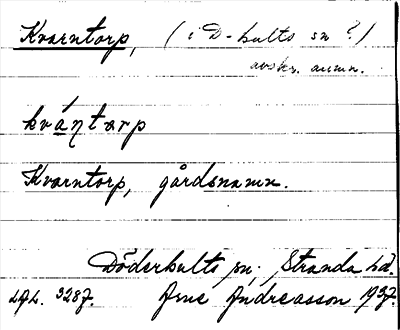 Kvarntorp, (i D-hults sn?)
avskr. anmn.
kvántorp
Kvarntorp, gårdsnamn.
Döderhults sn. Stranda hd.
LAL. 3287. Arne Andreasson 1937.